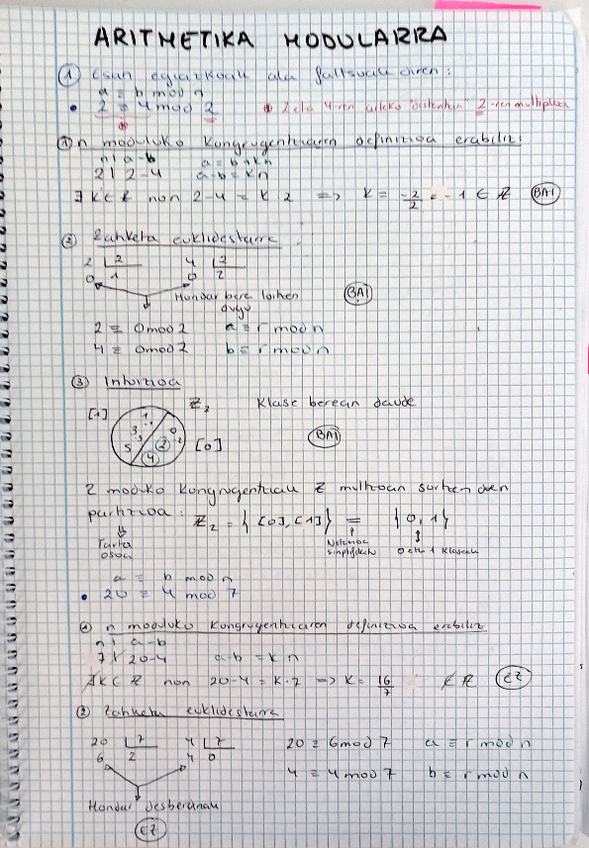 ARITMETIKA MODULARRA
① Esan egiazkoak ala faltsuak diren:
a ≡ b mod n
• 2 ≡ 4 mod 2 2 eta 4-ren arteko "distantzia" 2-ren multiploa
① n moduluko kongruentziaren definizioa erabiliz:
n | a-b a = b + kn
2 | 2-4 a-b = kn
∃ k ∈ ℤ non 2-4 = k·2 ⟹ k = -2/2 = -1 ∈ ℤ BAI
② Zatiketa euklidestarra
2 2 4 2
0 1 0 2
Hondar bera lortzen BAI
dugu
2 ≡ 0 mod 2 a ≡ r mod n
4 ≡ 0 mod 2 b ≡ r mod n
③ Intuizioa
[1] ℤ₂ Klase berean daude
1 3 5 0 2 -2 4 [0] BAI
2 moduko kongruentziak ℤ multzoan sortzen duen
partizioa: ℤ₂ = { [0], [1] } = { 0, 1 }
Tarta Notazioa 0 eta 1 klaseak
osoa sinplifikatu
a ≡ b mod n
• 20 ≡ 4 mod 7
① n moduluko kongruentziaren definizioa erabiliz
n | a-b
7 ∤ 20-4 a-b = k n
∄ k ∈ ℤ non 20-4 = k·7 ⟹ k = 16/7 ∉ ℤ EZ
② Zatiketa euklidestarra
20 7 4 7 20 ≡ 6 mod 7 a ≡ r mod n
6 2 4 0 4 ≡ 4 mod 7 b ≡ r mod n
Hondar desberdinak
EZ